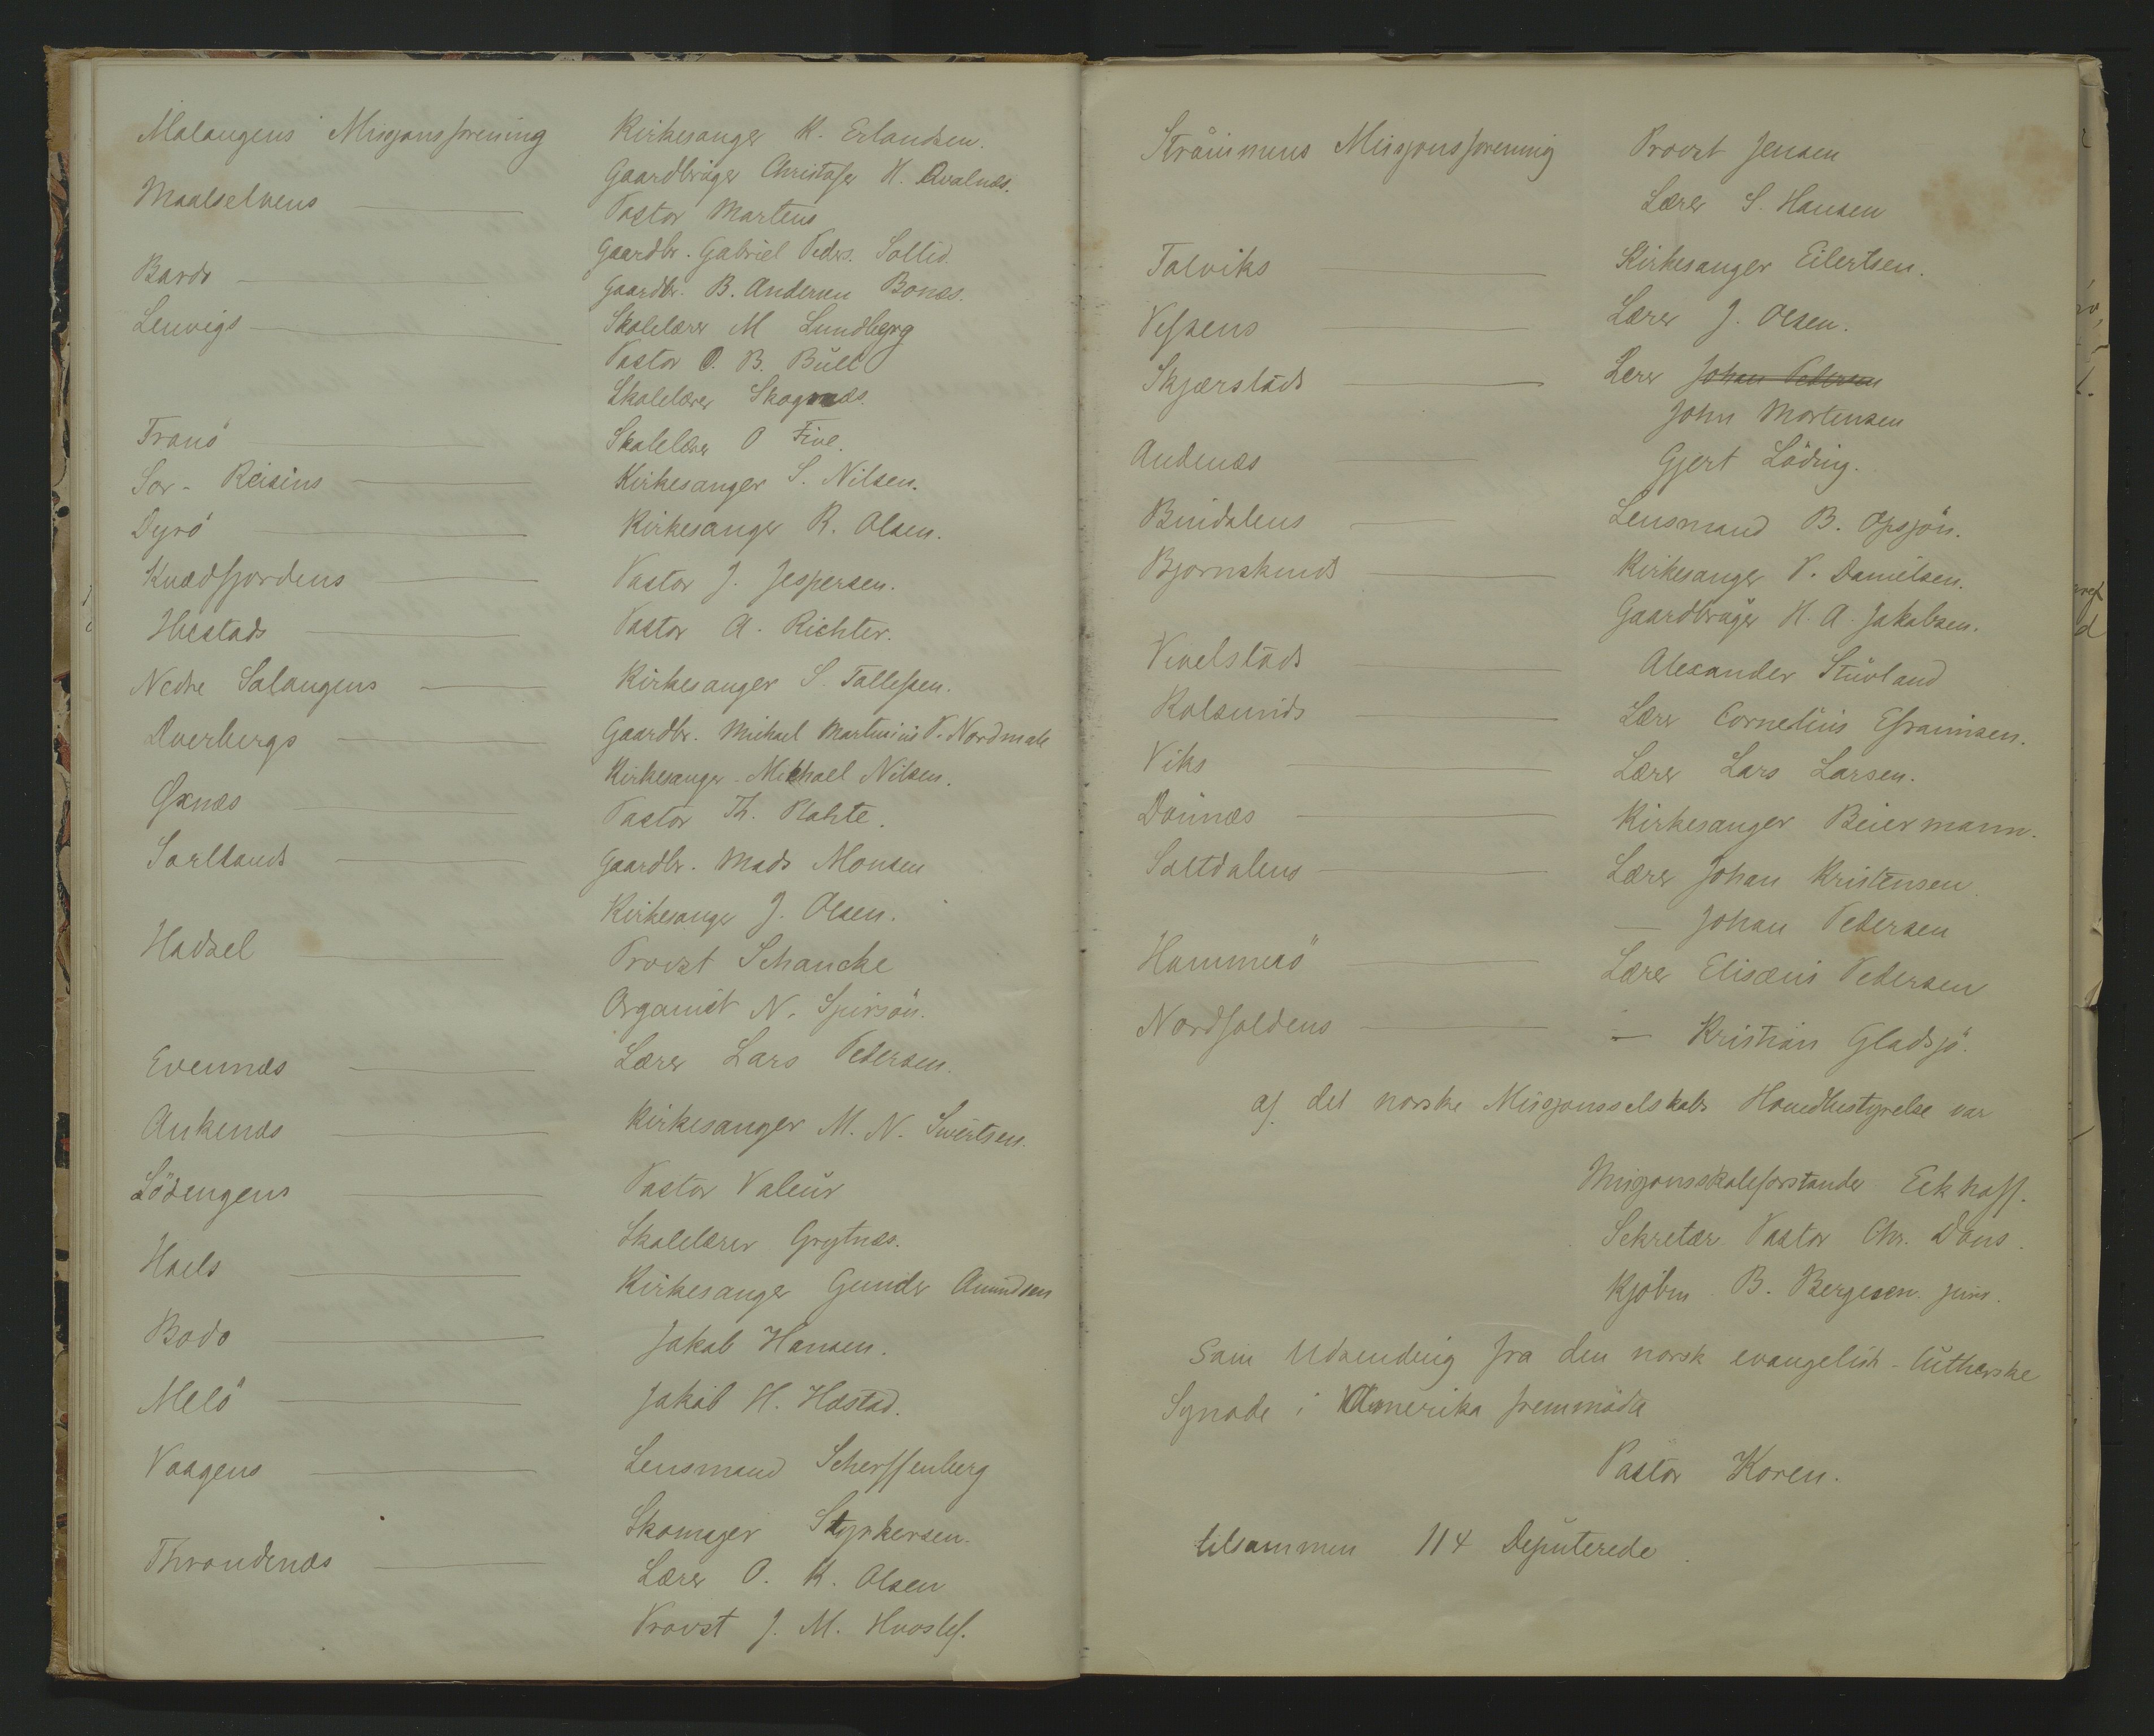 Malangens Misjonsforening Kirkesanger K. Erlandsen.
Gaardbruger Christofer H. Qvalnæs.
Maalselvens — Pastor Martens
Gaardbr. Gabriel Peders. Sollid.
Bardo — Gaardbr. B. Andersen Bonæs.
Lenvigs — Skolelærer M Lundberg
Pastor O. B. Bull
Skolelærer Skognæs.
Tranö — Skolelærer O Five.
Sor-Reisens — Kirkesanger S. Nilsen.
Dyrö — Kirkesanger R. Olsen.
Kvædfjordens — Pastor J. Jespersen.
Ibestads — Pastor A. Richter.
Nedre Salangens — Kirkesanger S. Tollefsen.
Dverbergs — Gaardbr. Michael Martinius P. Nordmæle
Kirkesanger Mikhael Nilsen.
Øxnæs — Pastor Th. Klahte.
Sortlands — Gaardbr. Mads Monsen
Kirkesanger J. Olsen.
Hadsel — Provst Schancke
Organist N. Spirsön.
Evennæs — Lærer Lars Pedersen.
Ankenæs — Kirkesanger M. N. Sivertsen.
Lödengens — Pastor Valeur
Skolelærer Grytnæs.
Hols — Kirkesanger Gunder Amundsen
Bodo — Jakob Hansen.
Melö — Jakob H. Hæstad.
Vaagens — Lensmand Scherffenberg
Skomager Styrkersen.
Throndenæs — Lærer O. K. Olsen
Provst J. M. Hvoslef.
Strömmens Misjonsforening Provst Jensen
Lærer S. Hansen
Talviks — Kirkesanger Eilertsen.
Vefsens — Lærer J. Olsen.
Skjærstads — Lærer Johan Pedersen
John Mortensen
Andenæs — Gjert Löding.
Bindalens — Lensmand B. Opsjön.
Bjornskinds — Kirkesanger P. Danielsen.
Gaardbruger H. A. Jakobsen.
Vevelstads — Alexander Stuvland
Rolsunds — Lærer Cornelius Efraimsen.
Viks — Lærer Lars Larsen.
Dönnæs — Kirkesanger Beiermann.
Saltdalens — Lærer Johan Kristensen
— Johan Pedersen
Hammerö — Lærer Elisæus Pedersen
Nordfoldens — — Kristian Gladsjö.
af det norske Misjonsselskabs Hovedbestyrelse var
Misjonsskoleforstander Eckhoff.
Sekretær Pastor Chr. Dons.
Kjöbm. B. Bergesen. jun.
Som Udsending fra den norsk evangelisk-lutherske
Synode i Amerika fremmödte
Pastor Koren.
tilsammen 114 Deputerede.